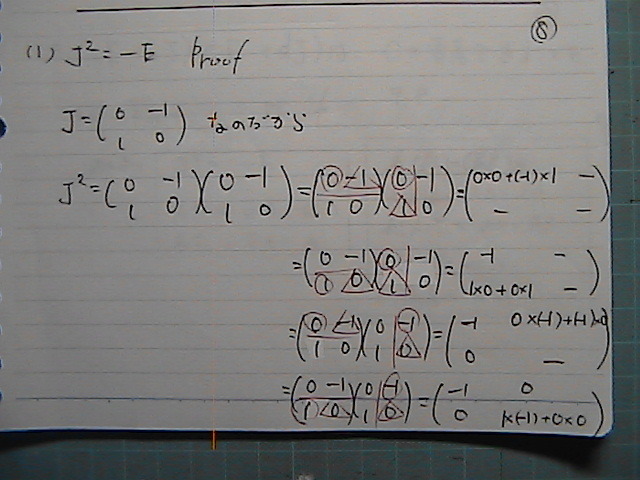 ⑧
(1) J² = -E Proof
J = (0 -1; 1 0) なのだから
J² = (0 -1; 1 0)(0 -1; 1 0) = (0 -1; 1 0)(0 -1; 1 0) = (0×0+(-1)×1 -; - -)
= (0 -1; 1 0)(0 -1; 1 0) = (-1 -; 1×0+0×1 -)
= (0 -1; 1 0)(0 -1; 1 0) = (-1 0×(-1)+(-1)×0; 0 -)
= (0 -1; 1 0)(0 -1; 1 0) = (-1 0; 0 1×(-1)+0×0)